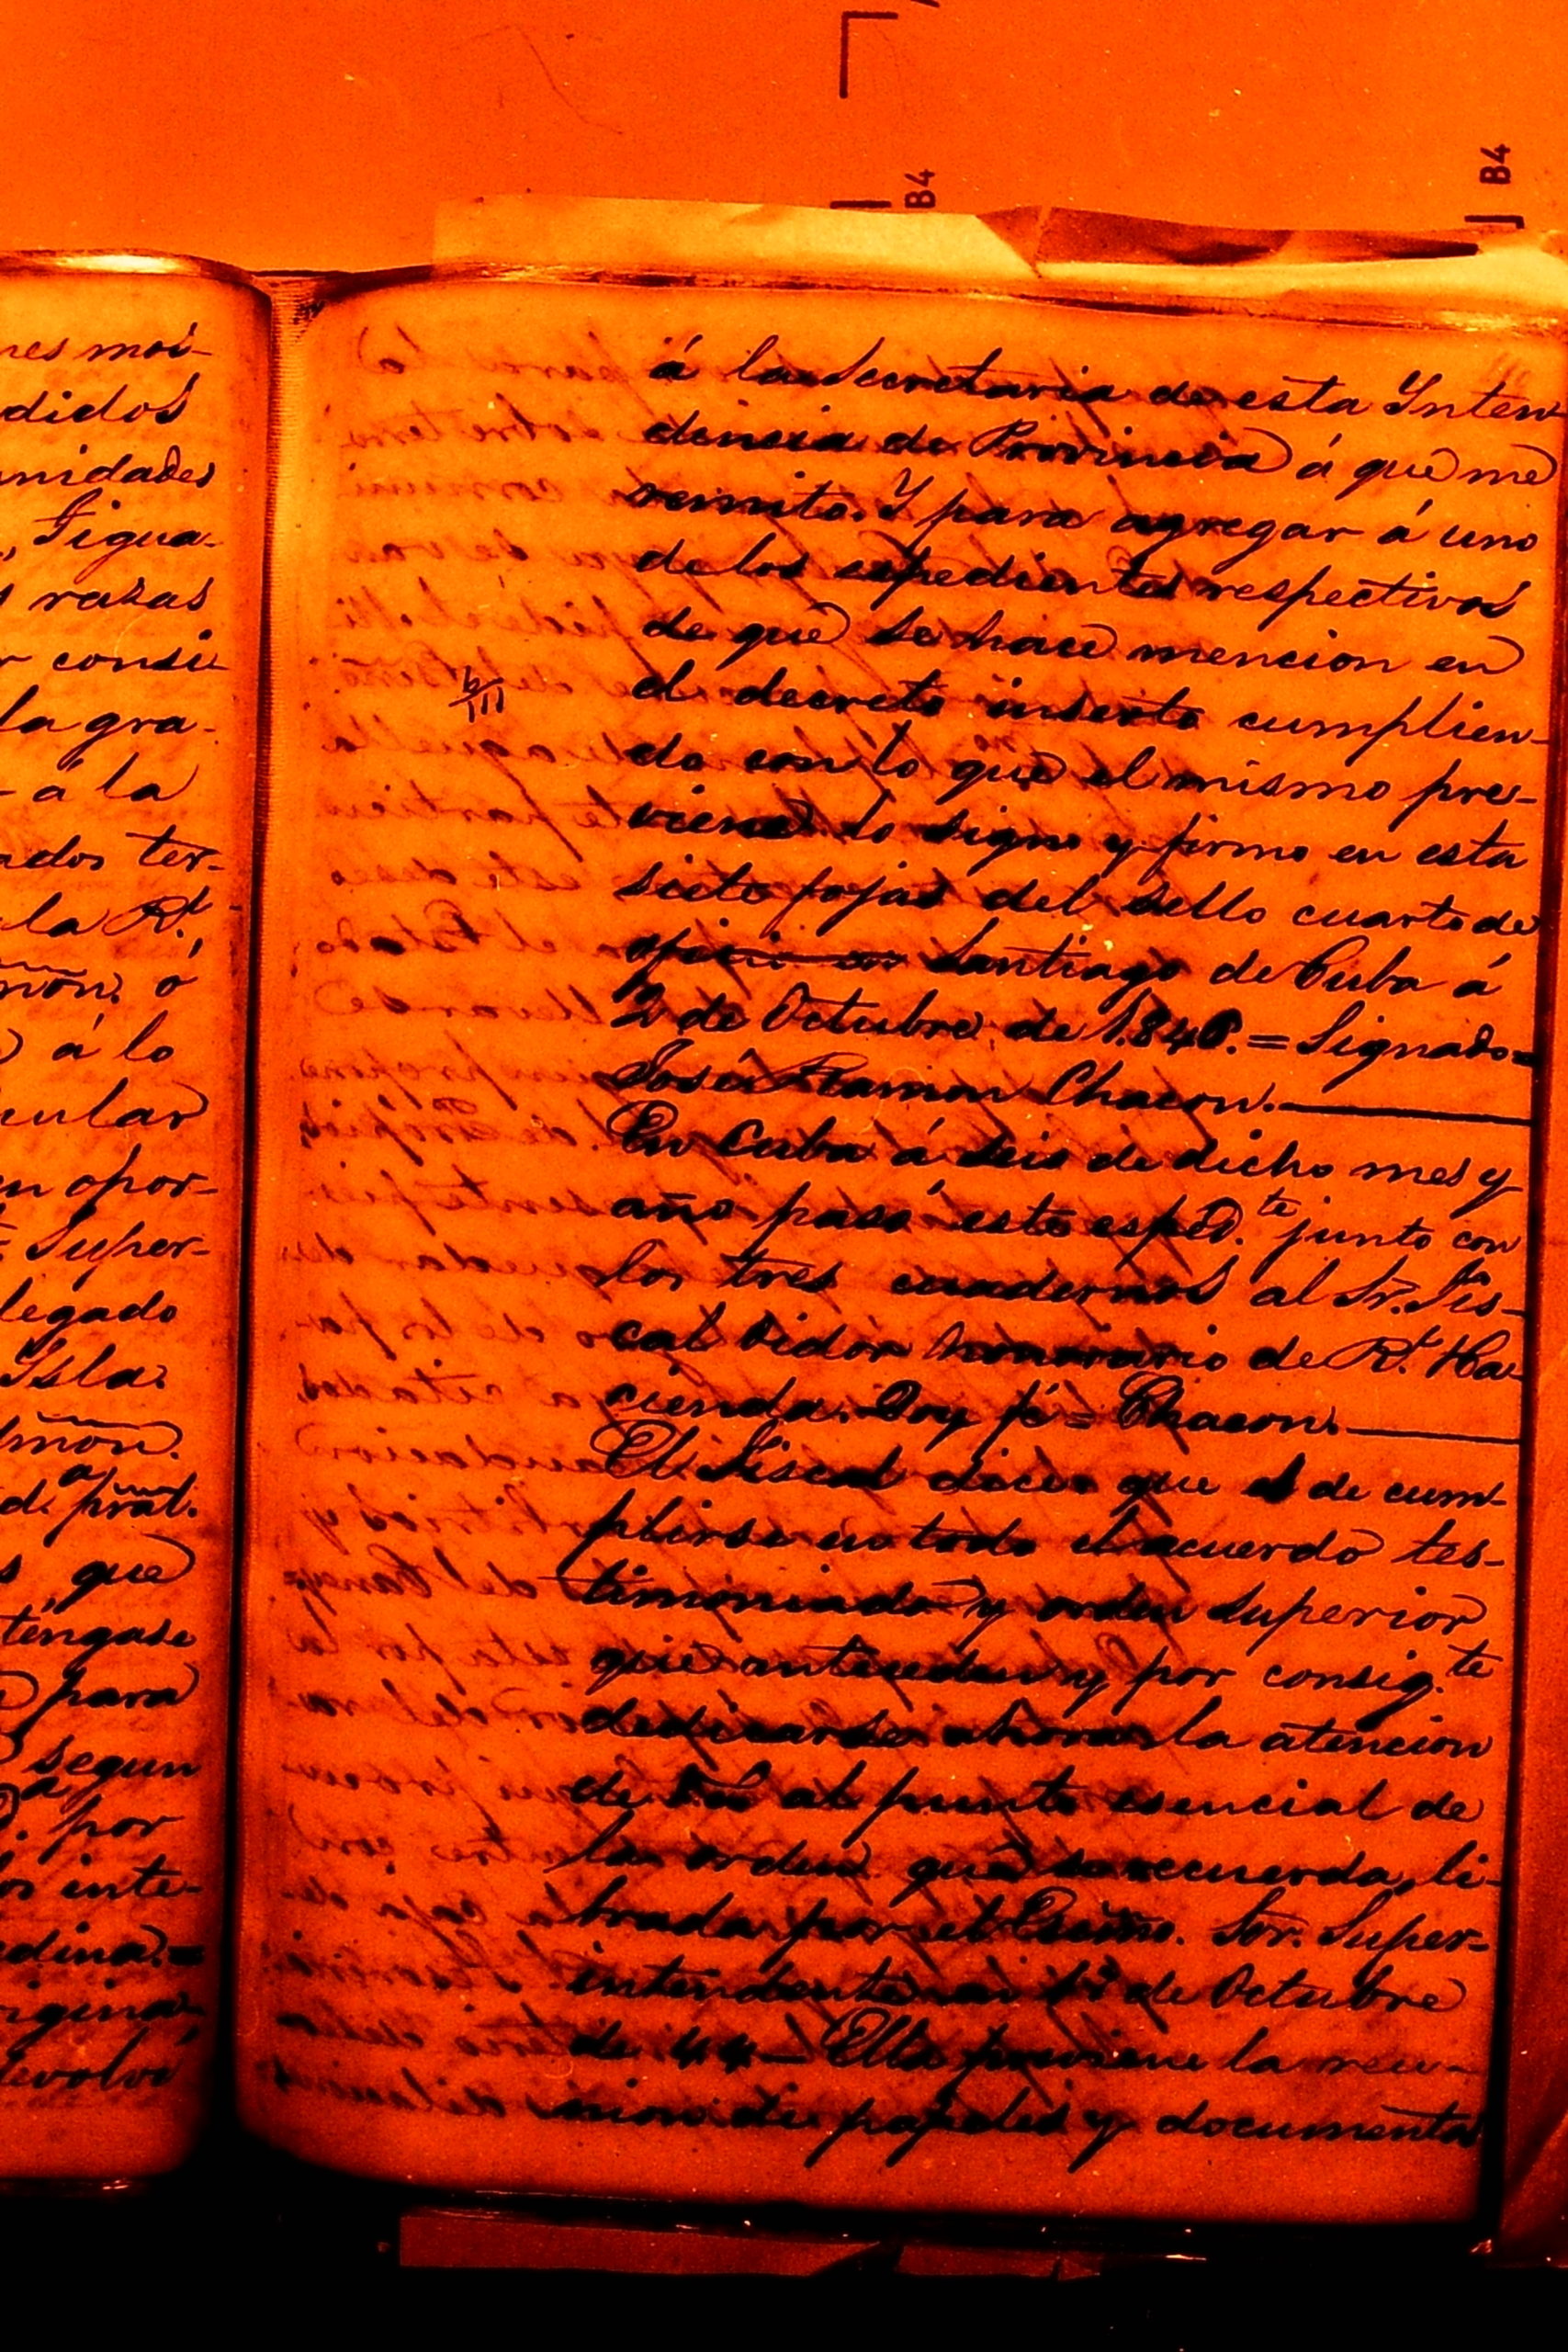 B4
B4
nes moi-
didos
unidades
Jigua-
razas
r consi-
la gra-
á la
ados ter-
la Rl.
món. ó
á lo
cular
en opor-
Super-
legado
Ysla.
d. pral.
s, que
téngase
para
segun
por
os inte-
edina.=
igina-
devolvi
á la Secretaria de esta Inten-
dencia de Provincia á que me
remito. Y para agregar á uno
de los espedientes respectivos
de que se hace mencion en
el decreto inserto cumplien-
do con lo que el mismo pre-
viene lo signo y firmo en esta
siete fojas del sello cuarto de
oficio en Santiago de Cuba á
2 de Octubre de 1846.=Signado=
José Ramon Chacon.
6/III
En Cuba á seis de dicho mes y
año pasó este esped.te junto con
los tres cuadernos al Sr. Fis-
cal Oidor honorario de Rl. Ha-
cienda. Doy fé= Chacon.
El Fiscal dice que es de cum-
plirse en todo el acuerdo tes-
timoniado y orden superior
que anteceden y por consig.te
dedicarse ahora la atencion
de al punto esencial de
la orden que se recuerda, li-
brada por el Escmo. Sor. Super-
intendente en 1º de Octubre
de 44- Ella previene la reu-
nion de papeles y documentos